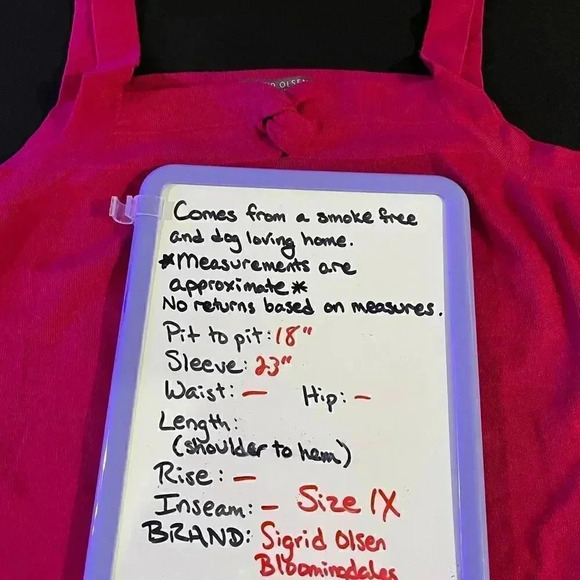 OLSEN
Comes from a smoke free
and dog loving home.
*Measurements are
approximate*
No returns based on measures.
Pit to pit: 18"
Sleeve: 23"
Waist: — Hip: –
Length:
(shoulder to hem)
Rise: –
Inseam: – Size 1X
BRAND: Sigrid Olsen
Bloomingdales